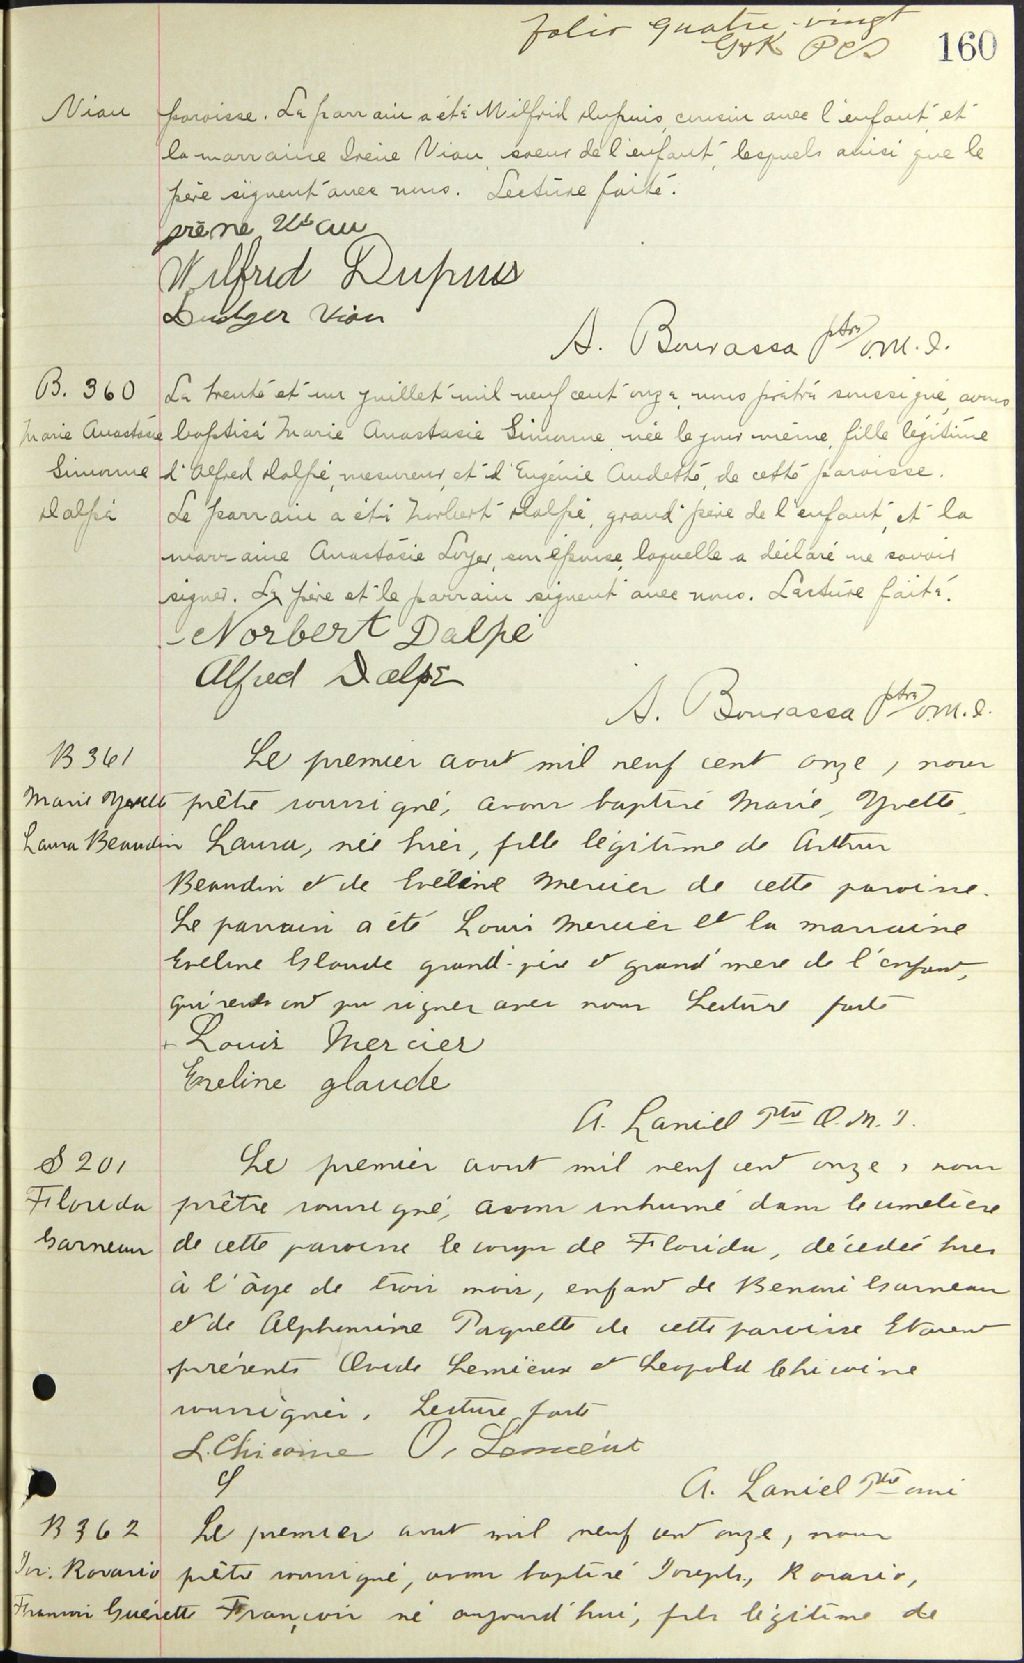 folio quatre-vingt
160
Viau
paroisse. Le parrain a été Wilfrid Dupuis, cousin avec l'enfant, et
la marraine Irène Viau, soeur de l'enfant, lesquels ainsi que le
père signent avec nous. Lecture faite.
Irène Viau
Wilfrid Dupuis
Ludger Viau
A. Bourassa ptre O.M.I.
B. 360
Marie Anastasie
Simonne
Dalpé
Le trente et un juillet mil neuf cent onze, nous prêtre soussigné, avons
baptisé Marie Anastasie Simonne née le jour même, fille légitime
d'Alfred Dalpé, mesureur, et d'Eugénie Audette, de cette paroisse.
Le parrain a été Norbert Dalpé, grand père de l'enfant, et la
marraine Anastasie Loyer, son épouse, laquelle a déclaré ne savoir
signer. Le père et le parrain signent avec nous. Lecture faite.
Norbert Dalpé
Alfred Dalpé
A. Bourassa ptre O.M.I.
B 361
Marie Yvette
Laura Beaudin
Le premier aout mil neuf cent onze, nous
prêtre soussigné, avons baptisé Marie, Yvette,
Laura, née hier, fille légitime de Arthur
Beaudin et de Eveline Mercier de cette paroisse.
Le parrain a été Louis Mercier et la marraine
Eveline Glaude grand-père et grand'mère de l'enfant,
qui seuls ont pu signer avec nous Lecture faite
Louis Mercier
Eveline glaude
A. Laniel Ptre O.M.I.
S 201
Florida
Garneau
Le premier aout mil neuf cent onze, nous
prêtre soussigné, avons inhumé dans le cimetière
de cette paroisse le corps de Florida, décédée hier
à l'âge de trois mois, enfant de Benoni Garneau
et de Alphonsine Paquette de cette paroisse Etaient
présents Ovide Lemieux et Léopold Chicoine
soussignés. Lecture faite
L. Chicoine O. Lemieux
A. Laniel Ptre omi
B 362
Jos. Rosario
François Guérette
Le premier aout mil neuf cent onze, nous
prêtre soussigné, avons baptisé Joseph, Rosario,
François né aujourd'hui, fils légitime de